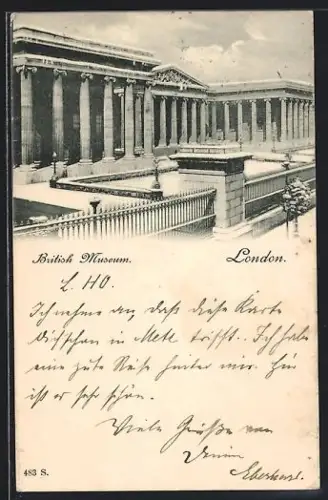 British Museum.
London.
L. HO.
Ich nehme an, daß diese Karte
Dich schon in Metz trifft. Ich habe
eine gute Reise hinter mir. Hier
ist es sehr schön.
Viele Grüße von
Deinem
Eberhard.
483 S.